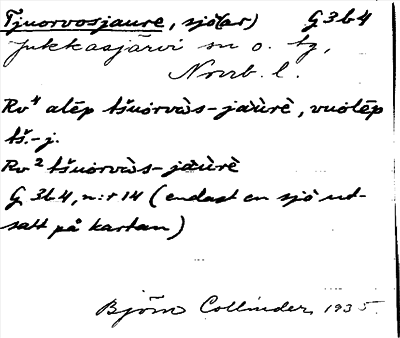 Tjuorvosjaure, sjö(ar) G3b4
Jukkasjärvi sn o. tg,
Norrb. l.
Rv¹ alēp tšuorvàs-jaùrè, vuolēp
tš.-j.
Rv² tšuorvàs-jaùrè
G 3b4, n:r 14 (endast en sjö ut-
satt på kartan)
Björn Collinder 1935.